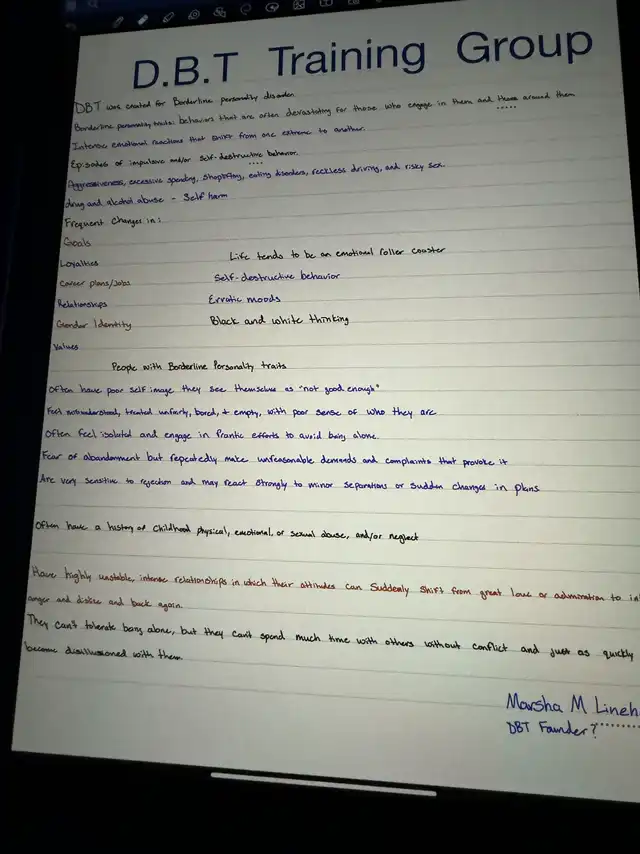 D.B.T Training Group
DBT was created for Borderline personality disorder.
Borderline personality traits: behaviors that are often devastating for those who engage in them and those around them
Intense emotional reactions that shift from one extreme to another.
Episodes of impulsive and/or self-destructive behavior.
Aggressiveness, excessive spending, shoplifting, eating disorders, reckless driving, and risky sex.
drug and alcohol abuse - Self harm
Frequent Changes in:
Goals
Loyalties
Life tends to be an emotional roller coaster
Career plans/Jobs
Self-destructive behavior
Relationships
Erratic moods
Gender Identity
Black and white thinking
Values
People with Borderline Personality traits
Often have poor self image they see themselves as "not good enough"
Feel misunderstood, treated unfairly, bored, + empty, with poor sense of who they are
Often feel isolated and engage in frantic efforts to avoid being alone.
Fear of abandonment but repeatedly make unreasonable demands and complaints that provoke it
Are very sensitive to rejection and may react strongly to minor separations or sudden changes in plans
Often have a history of childhood physical, emotional, or sexual abuse, and/or neglect
Have highly unstable, intense relationships in which their attitudes can suddenly shift from great love or admiration to in
anger and dislike and back again.
They can't tolerate being alone, but they can't spend much time with others without conflict and just as quickly
become disillusioned with them.
Marsha M Lineh
DBT Founder?